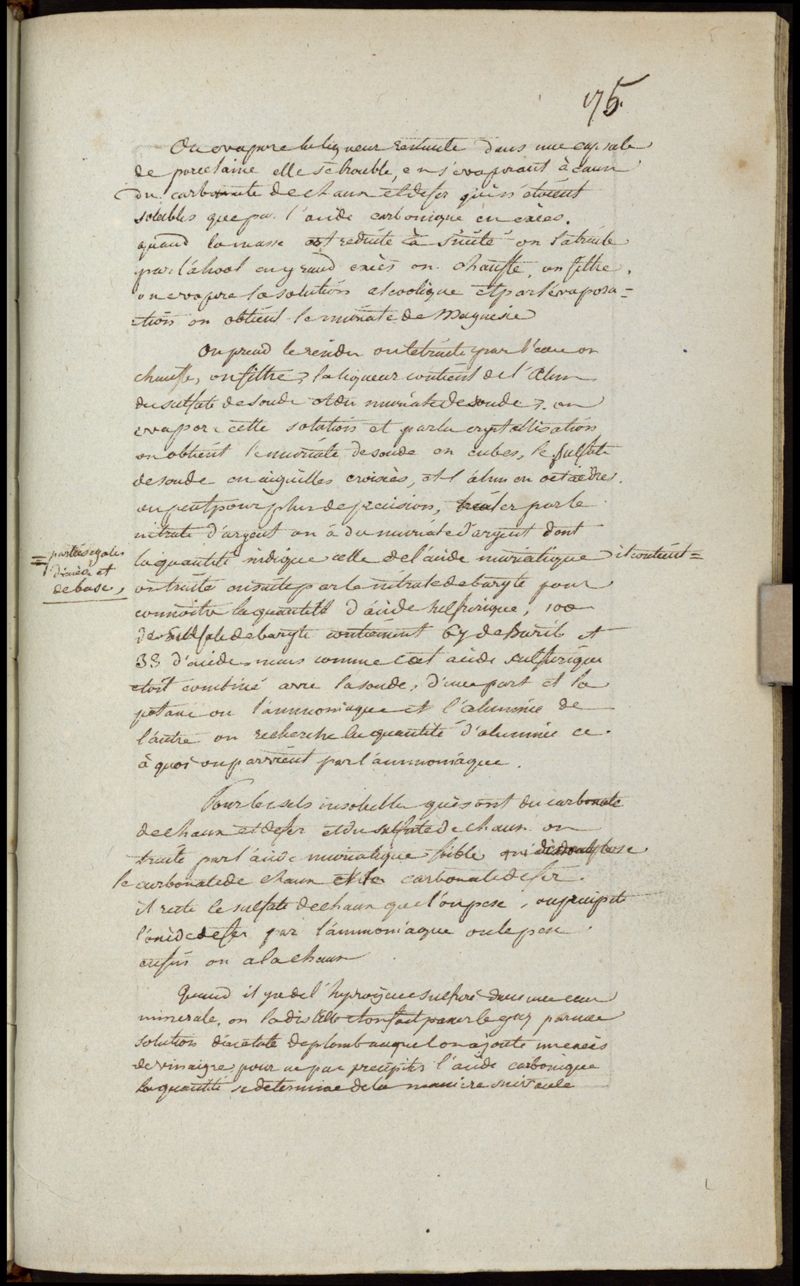 175.
On evapore la liqueur restante dans une capsule
de porcelaine elle se trouble, en s'evaporant à cause
du carbonate de chaux et de fer qui n'etoient
solubles que par l'acide carbonique en excès.
quand la masse est reduite à siccité on la traite
par l'alcool en grand excès on chauffe, on filtre,
on evapore la solution alcoolique et par l'evapora=
tion on obtient le muriate de Magnesie
On prend le residu on le traite par l'eau on
chauffe, on filtre, la liqueur contient de l'alun
du sulfate de soude et du muriate de soude, on
evapore cette solution et par la crystallisation
on obtient le muriate de soude en cubes, le sulfate
de soude en aiguilles croisées, et l'alun en octaedres.
on peut pour plus de precision, traiter par le
nitrate d'argent on a du muriate d'argent dont
la quantité indique celle de l'acide muriatique il contient=
= parties egales
d'acide et
de base,
on traite ensuite par le nitrate de baryte pour
connoitre la quantité d'acide sulfurique, 100
de sulfate de baryte contiennent 67 de Barite et
33 d'acide mais comme cet acide sulfurique
etoit combiné avec la soude, d'une part et la
potasse ou l'ammoniaque et l'alumine de
l'autre on recherche la quantité d'alumine ce
à quoi on parvient par l'ammoniaque.
Pour les sels insolubles qui sont du carbonate
de chaux et de fer et du sulfate de chaux on
traite par l'acide muriatique foible qui
le carbonate de chaux et le carbonate de fer.
il reste le sulfate de chaux que l'on pese, on precipite
l'oxide de fer par l'ammoniaque on le pese
enfin on a la chaux
Quand il y a de l'hydrogene sulfuré dans une eau
minerale, on la distille et on fait passer le gaz par une
solution d'acetate de plomb auquel on ajoute un excès
de vinaigre pour ne pas precipiter l'acide carbonique
la quantité se determine de la maniere suivante